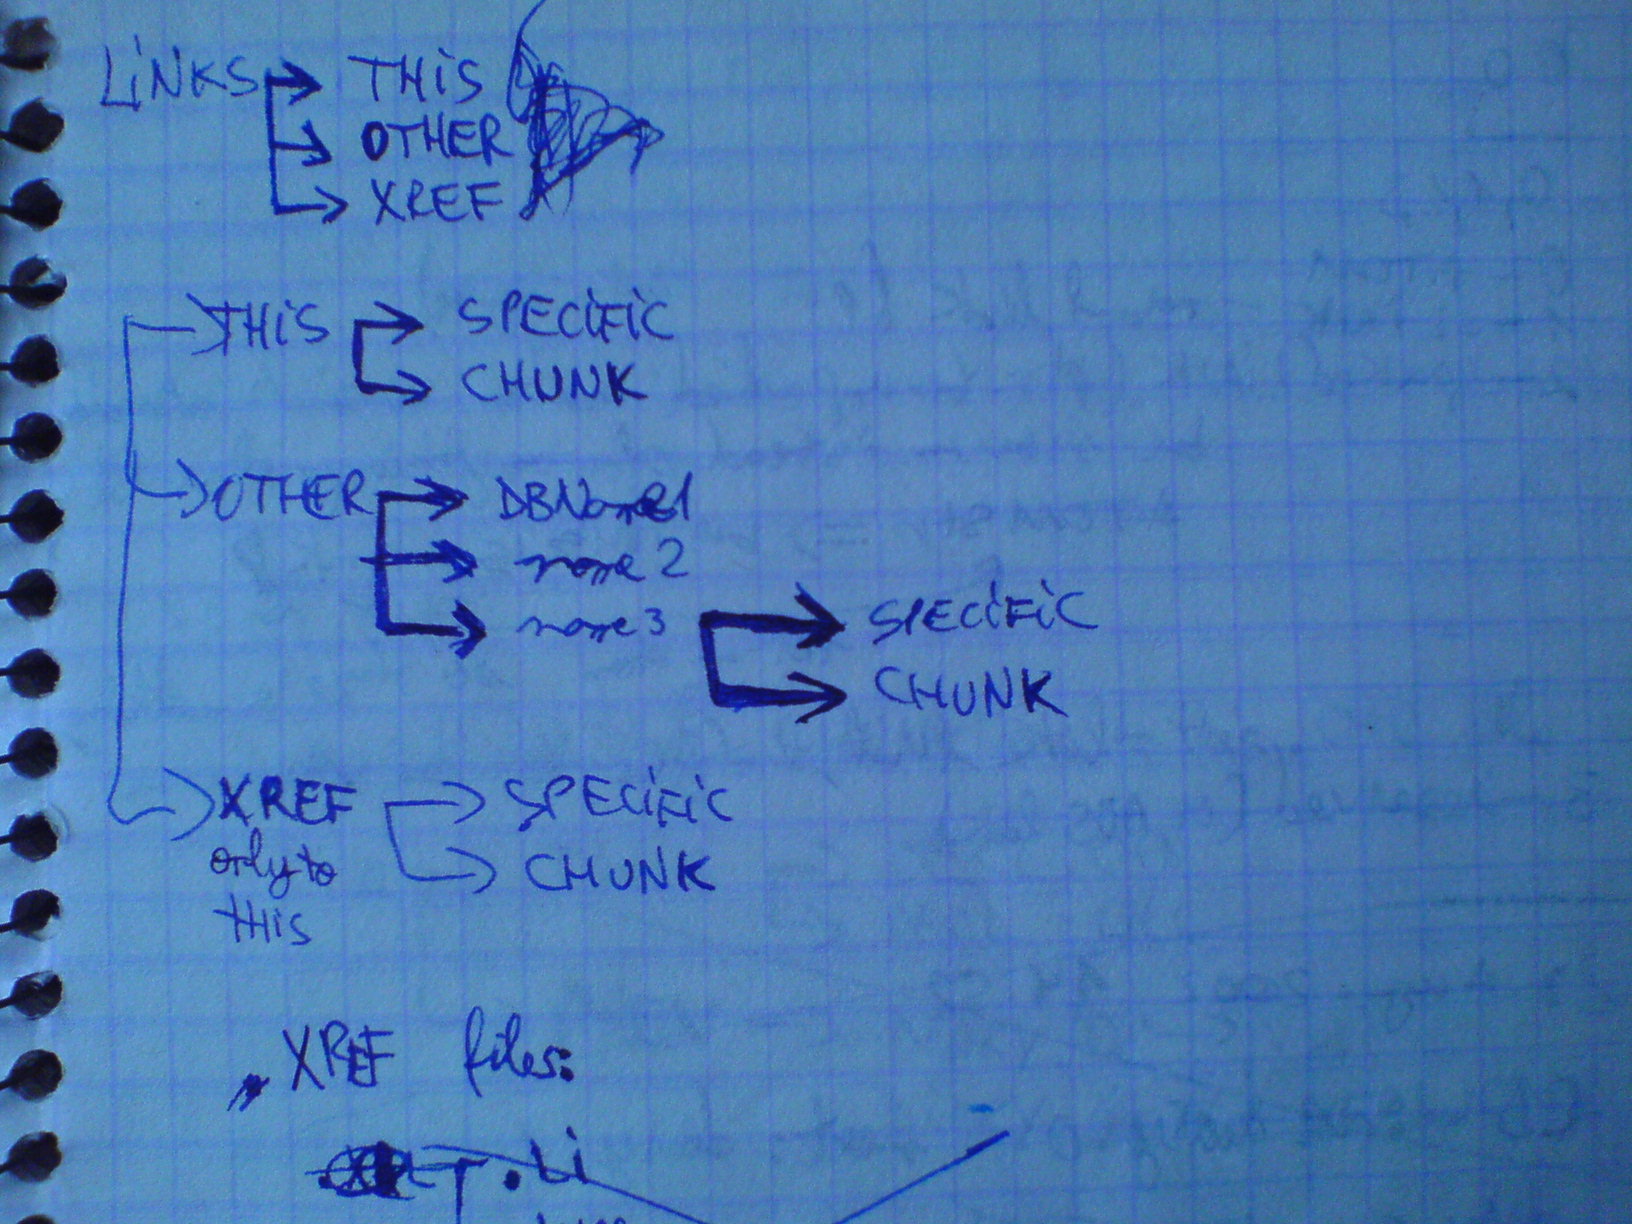 LiNKS THiS
OTHER
XREF
THiS SPECiFiC
CHUNK
OTHER DBName1
name 2
name 3 SPECiFiC
CHUNK
XREF SPECiFiC
only to CHUNK
THiS
XREF files:
.Li